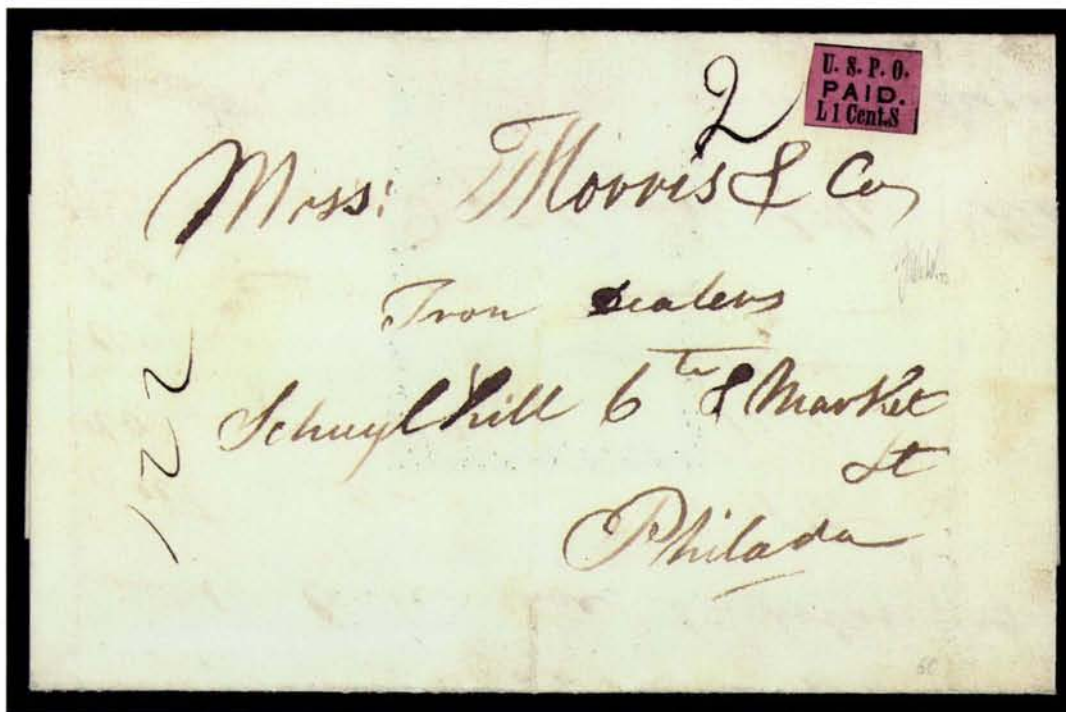 U. S. P. O.
PAID.
L 1 Cent.S
2
Mess: TMorris & Co
Iron Dealers
Schuylkill 6th & Market
St
Philada
122